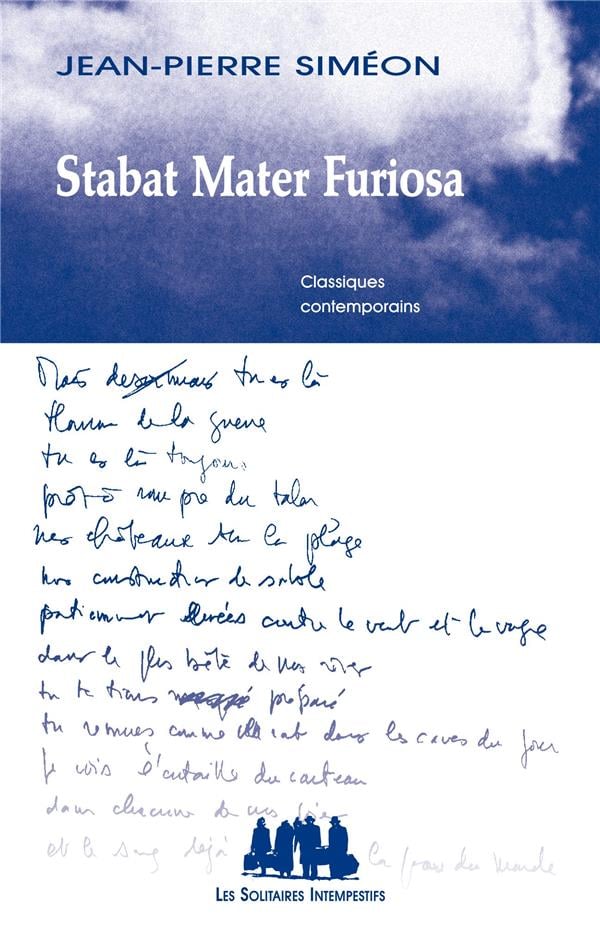 JEAN-PIERRE SIMÉON
Stabat Mater Furiosa
Classiques
contemporains
Mais desormais tu es là
Homme de la guerre
tu es là toujours
prêt à rompre du talon
nos châteaux sur la plage
nos construction de sable
patiemment élevées contre le vent et la vague
dans le plus bête de nos rêves
tu te tiens préparé
tu remues comme rat dans les caves du jour
je vois l'entaille du couteau
dans chacune de nos joies
et le sang déjà la peau du monde
LES SOLITAIRES INTEMPESTIFS